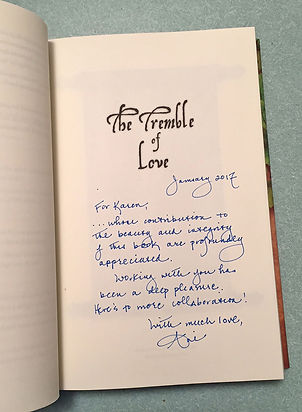 The Tremble
of
Love
January 2017
For Karen,
...whose contribution to
the beauty and integrity
of this book are profoundly
appreciated.
Working with you has
been a deep pleasure.
Here's to more collaboration!
With much love,
Ani